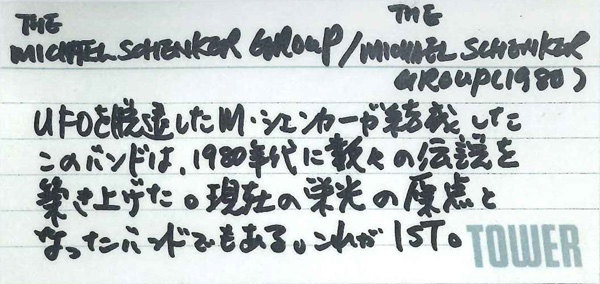 THE MICHAEL SCHENKER GROUP / THE MICHAEL SCHENKER
GROUP (1980)
UFOを脱退したM・シェンカーが結成した
このバンドは、1980年代に数々の伝説を
築き上げた。現在の栄光の原点と
なったバンドでもある。これが1ST。
TOWER